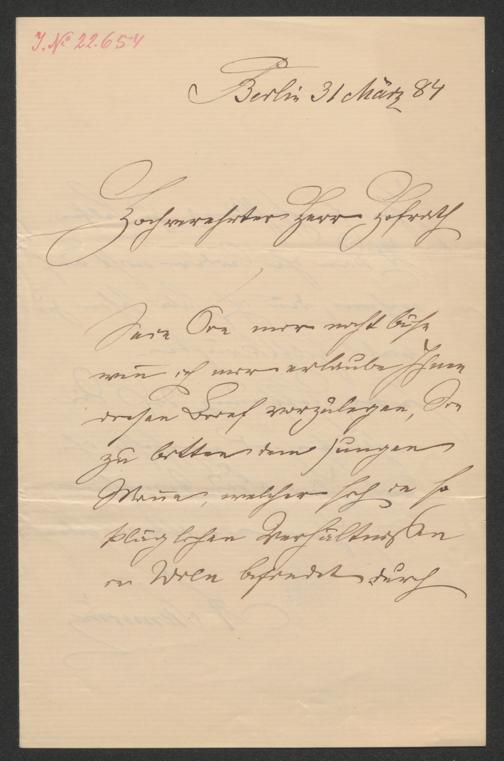 J. No 22.654
Berlin 31 März 84
Hochverehrter Herr Hofrath
Seien Sie mir nicht böse
wenn ich mir erlaube Ihnen
diesen Brief vorzulegen, Sie
zu bitten dem jungen
Manne, welcher sich in so
kläglichen Verhältnissen
in Wien befindet durch